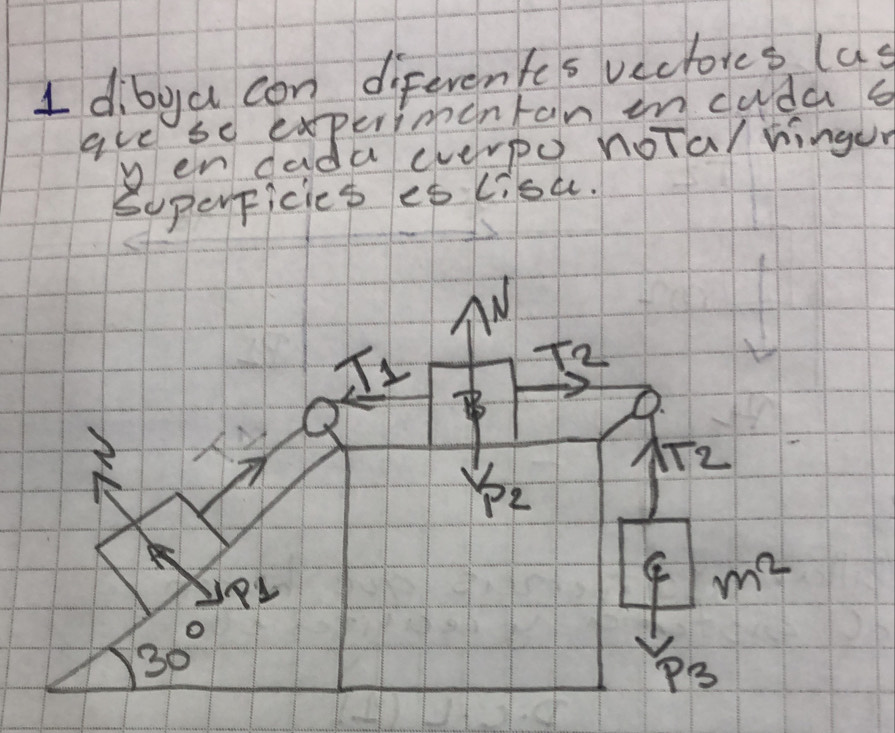 1 dibuja con diferentes vectores las
que se experimentan en cada s
y en cada cuerpo nota/ ningun
superficies es lisa.
N
T1
T2
B
N
T
P2
T2
A
P1
C
m²
30°
P3